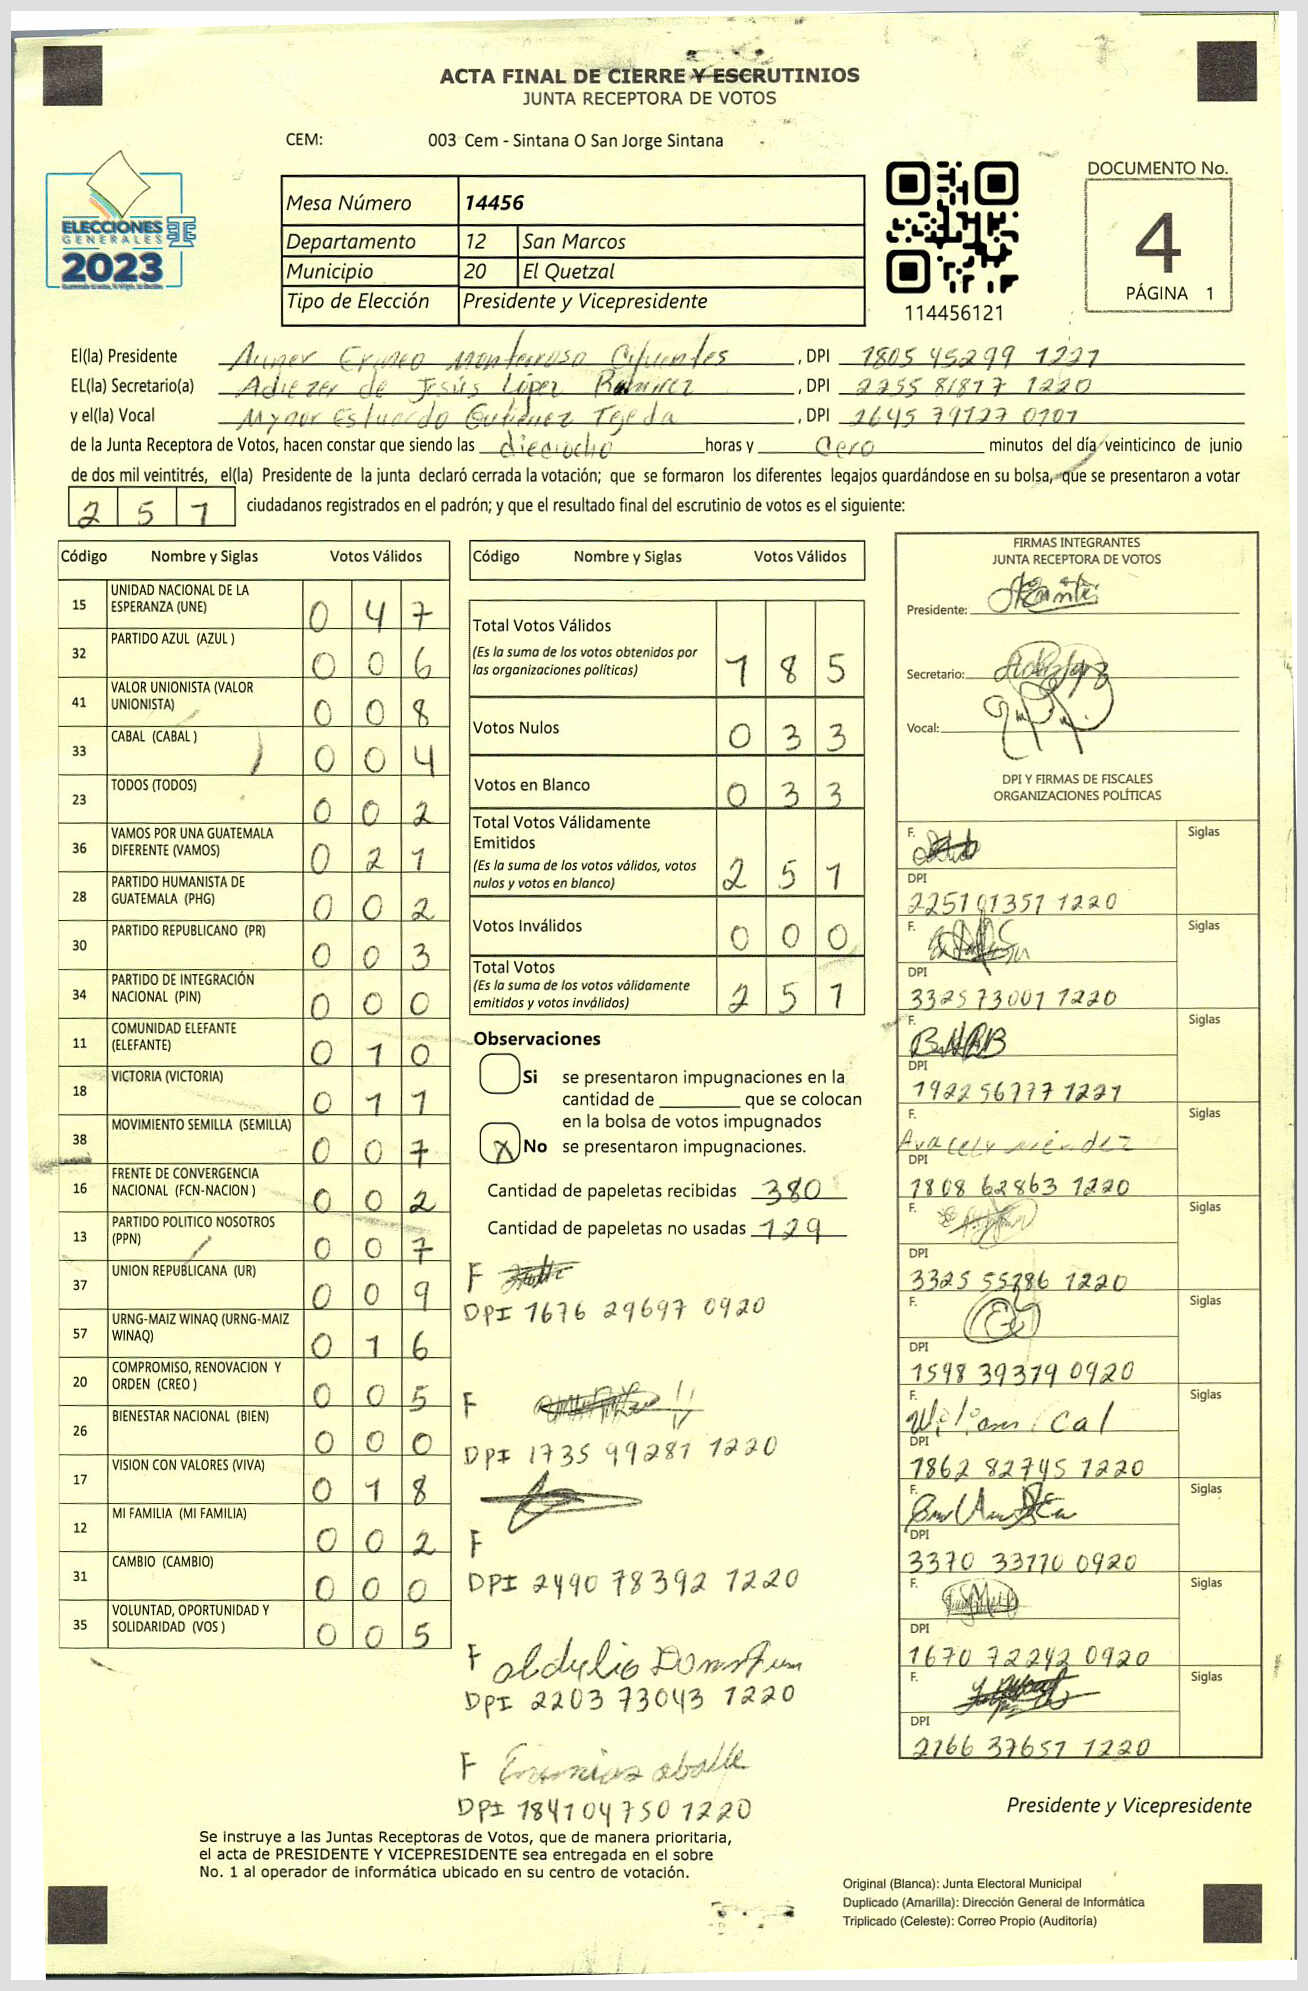 ACTA FINAL DE CIERRE Y ESCRUTINIOS
JUNTA RECEPTORA DE VOTOS
CEM: 003 Cem - Sintana O San Jorge Sintana
ELECCIONES
GENERALES
2023
Mesa Número 14456
Departamento 12 San Marcos
Municipio 20 El Quetzal
Tipo de Elección Presidente y Vicepresidente
114456121
DOCUMENTO No.
4
PÁGINA 1
El(la) Presidente Monterroso Cifuentes , DPI 1805 45299 1221
EL(la) Secretario(a) Adiezer de Jesús López Ramirez , DPI 2255 81877 1220
y el(la) Vocal Mynor Estuardo Gutiérrez Tejeda , DPI 2645 79127 0101
de la Junta Receptora de Votos, hacen constar que siendo las dieciocho horas y cero minutos del día veinticinco de junio
de dos mil veintitrés, el(la) Presidente de la junta declaró cerrada la votación; que se formaron los diferentes legajos guardándose en su bolsa, que se presentaron a votar
251 ciudadanos registrados en el padrón; y que el resultado final del escrutinio de votos es el siguiente:
Código Nombre y Siglas Votos Válidos
15 UNIDAD NACIONAL DE LA ESPERANZA (UNE) 047
32 PARTIDO AZUL (AZUL ) 006
41 VALOR UNIONISTA (VALOR UNIONISTA) 008
33 CABAL (CABAL ) 004
23 TODOS (TODOS) 002
36 VAMOS POR UNA GUATEMALA DIFERENTE (VAMOS) 021
28 PARTIDO HUMANISTA DE GUATEMALA (PHG) 002
30 PARTIDO REPUBLICANO (PR) 003
34 PARTIDO DE INTEGRACIÓN NACIONAL (PIN) 000
11 COMUNIDAD ELEFANTE (ELEFANTE) 010
18 VICTORIA (VICTORIA) 011
38 MOVIMIENTO SEMILLA (SEMILLA) 007
16 FRENTE DE CONVERGENCIA NACIONAL (FCN-NACION ) 002
13 PARTIDO POLITICO NOSOTROS (PPN) 007
37 UNION REPUBLICANA (UR) 009
57 URNG-MAIZ WINAQ (URNG-MAIZ WINAQ) 016
20 COMPROMISO, RENOVACION Y ORDEN (CREO ) 005
26 BIENESTAR NACIONAL (BIEN) 000
17 VISION CON VALORES (VIVA) 018
12 MI FAMILIA (MI FAMILIA) 002
31 CAMBIO (CAMBIO) 000
35 VOLUNTAD, OPORTUNIDAD Y SOLIDARIDAD (VOS ) 005
Código Nombre y Siglas Votos Válidos
Total Votos Válidos
(Es la suma de los votos obtenidos por las organizaciones políticas) 185
Votos Nulos 033
Votos en Blanco 033
Total Votos Válidamente Emitidos
(Es la suma de los votos válidos, votos nulos y votos en blanco) 251
Votos Inválidos 000
Total Votos
(Es la suma de los votos válidamente emitidos y votos inválidos) 251
Observaciones
Si se presentaron impugnaciones en la
cantidad de ________ que se colocan
en la bolsa de votos impugnados
X No se presentaron impugnaciones.
Cantidad de papeletas recibidas 380
Cantidad de papeletas no usadas 129
F
DPI 1676 29697 0920
F
DPI 1735 99281 1220
F
DPI 2490 78392 1220
F
DPI 2203 73043 1220
F
DPI 1841 04750 1220
FIRMAS INTEGRANTES
JUNTA RECEPTORA DE VOTOS
Presidente:
Secretario:
Vocal:
DPI Y FIRMAS DE FISCALES
ORGANIZACIONES POLÍTICAS
F. Siglas
DPI
2251 01351 1220
F. Siglas
DPI
3325 73001 1220
F. Siglas
DPI
1922 56777 1221
F. Aracely Méndez Siglas
DPI
1808 62863 1220
F. Siglas
DPI
3325 55286 1220
F. Siglas
DPI
1598 39379 0920
F. Siglas
DPI
1862 82745 1220
F. Siglas
DPI
3370 33170 0920
F. Siglas
DPI
1670 72242 0920
F. Siglas
DPI
2166 37651 1220
Presidente y Vicepresidente
Se instruye a las Juntas Receptoras de Votos, que de manera prioritaria,
el acta de PRESIDENTE Y VICEPRESIDENTE sea entregada en el sobre
No. 1 al operador de informática ubicado en su centro de votación.
Original (Blanca): Junta Electoral Municipal
Duplicado (Amarilla): Dirección General de Informática
Triplicado (Celeste): Correo Propio (Auditoría)